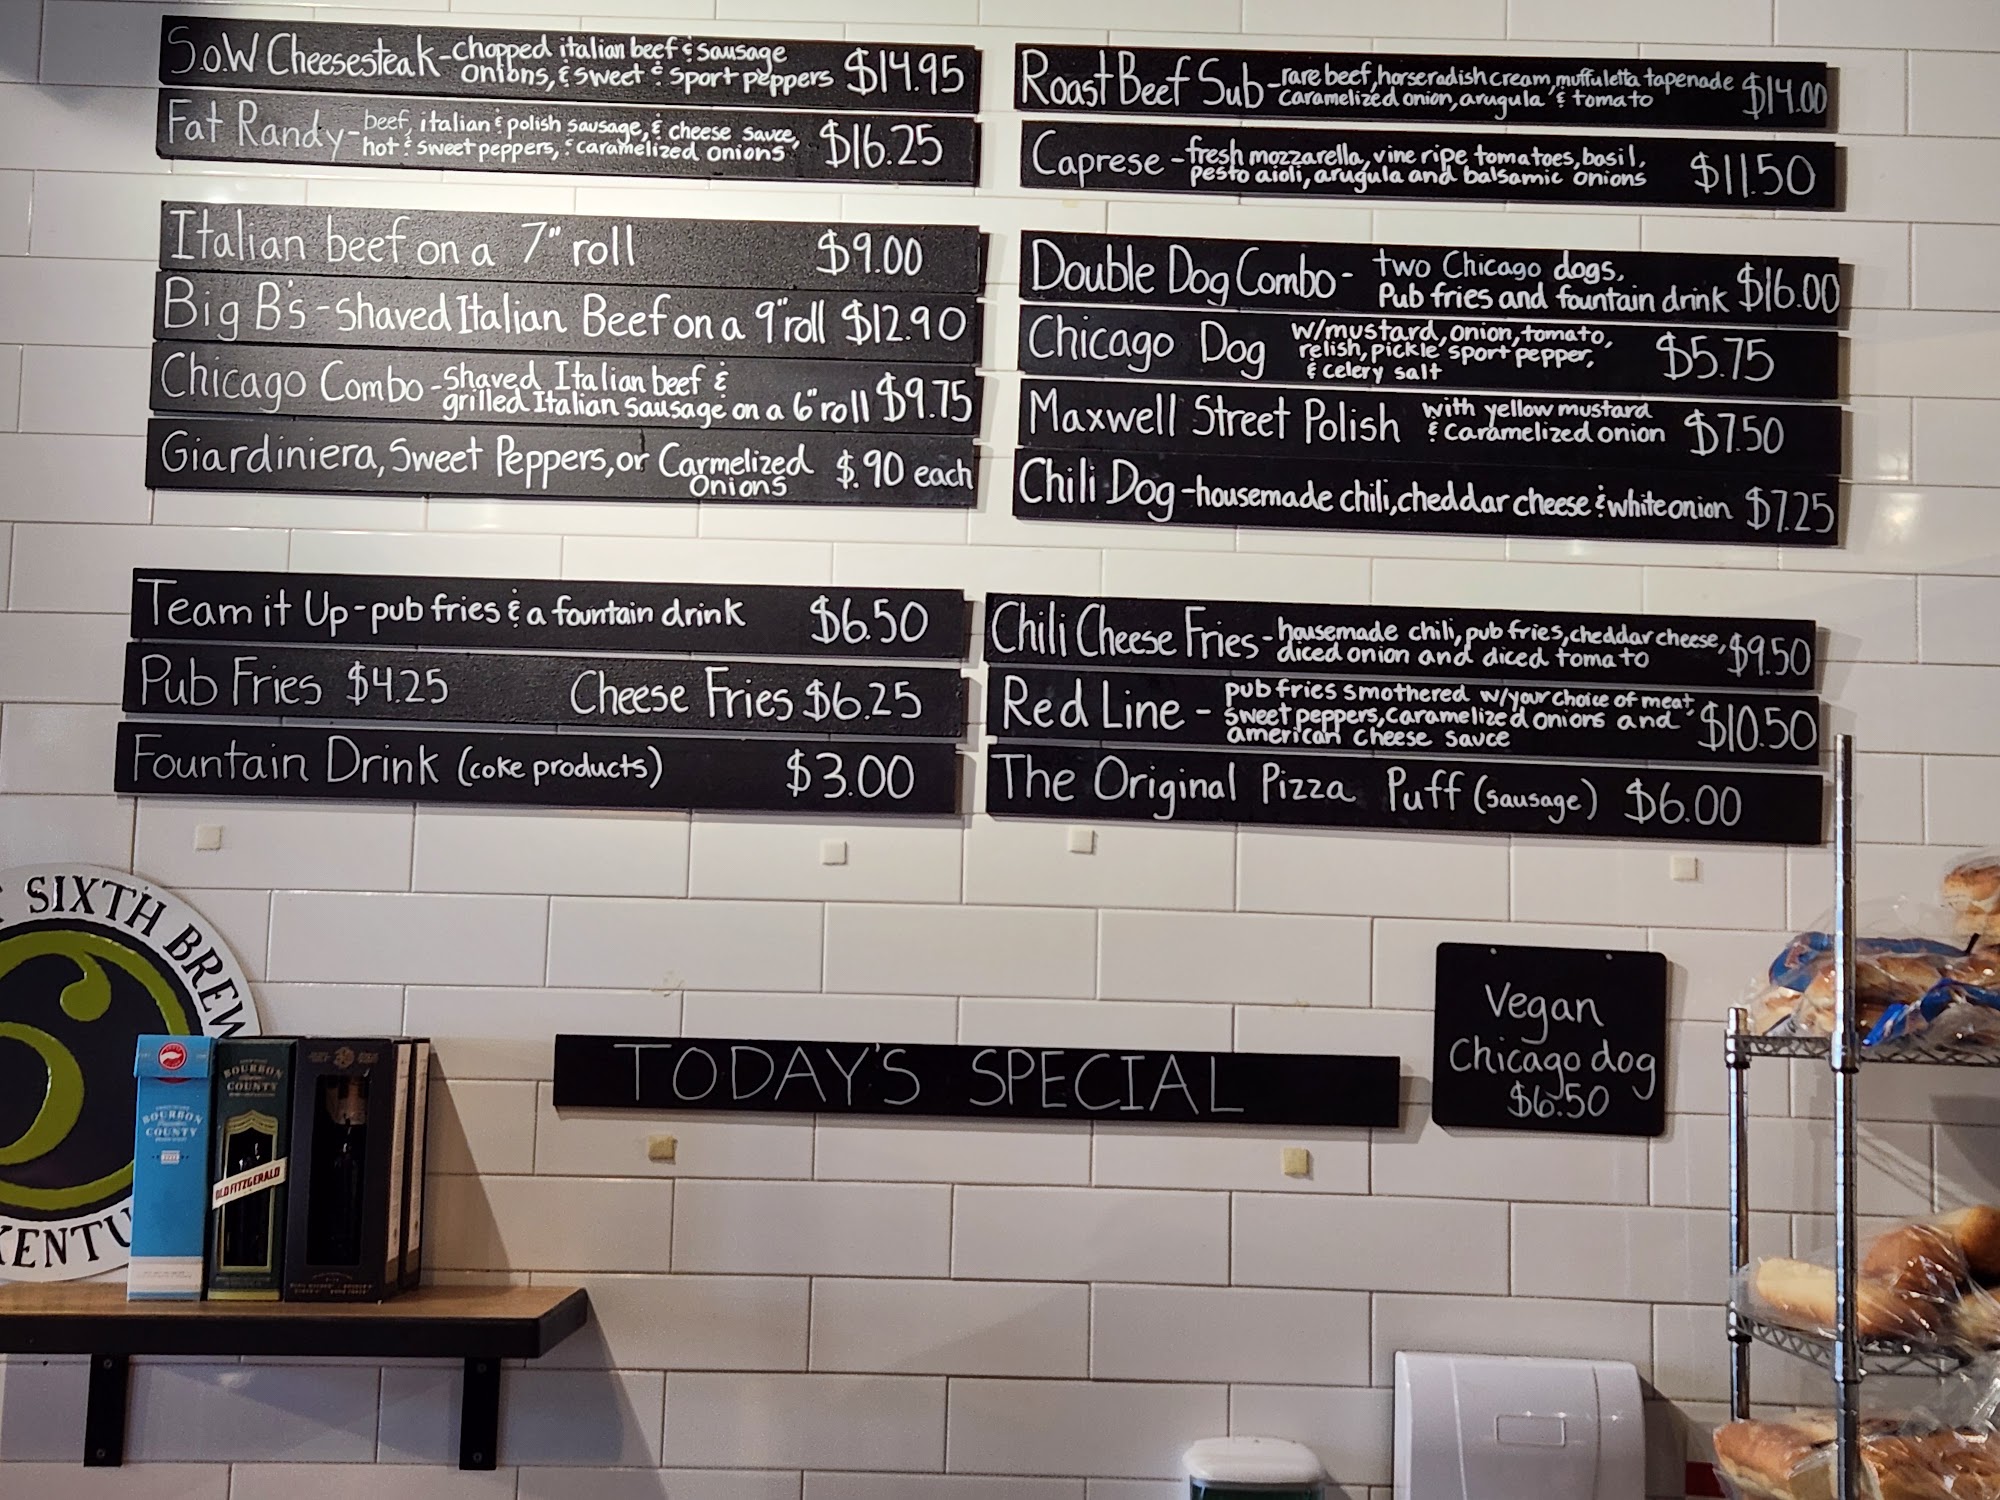 S.O.W Cheesesteak - chopped italian beef & sausage
onions, & sweet & sport peppers $14.95
Fat Randy - beef, italian & polish sausage, & cheese sauce,
hot & sweet peppers, & caramelized onions $16.25
Italian beef on a 7" roll $9.00
Big B's - shaved Italian Beef on a 9" roll $12.90
Chicago Combo - shaved Italian beef &
grilled Italian sausage on a 6" roll $9.75
Giardiniera, Sweet Peppers, or Carmelized
Onions $.90 each
Team it Up - pub fries & a fountain drink $6.50
Pub Fries $4.25 Cheese Fries $6.25
Fountain Drink (coke products) $3.00
Roast Beef Sub - rare beef, horseradish cream, muffuletta tapenade
caramelized onion, arugula & tomato $14.00
Caprese - fresh mozzarella, vine ripe tomatoes, basil,
pesto aioli, arugula and balsamic onions $11.50
Double Dog Combo - two Chicago dogs,
Pub fries and fountain drink $16.00
Chicago Dog w/mustard, onion, tomato,
relish, pickle sport pepper,
& celery salt $5.75
Maxwell Street Polish with yellow mustard
& caramelized onion $7.50
Chili Dog - housemade chili, cheddar cheese & white onion $7.25
Chili Cheese Fries - housemade chili, pub fries, cheddar cheese,
diced onion and diced tomato $9.50
Red Line - pub fries smothered w/your choice of meat,
sweet peppers, caramelized onions and
american cheese sauce $10.50
The Original Pizza Puff (sausage) $6.00
TODAY'S SPECIAL
Vegan
Chicago dog
$6.50
SIXTH BREW
KENTU
BOURBON
COUNTY
BOURBON
COUNTY
OLD FITZGERALD